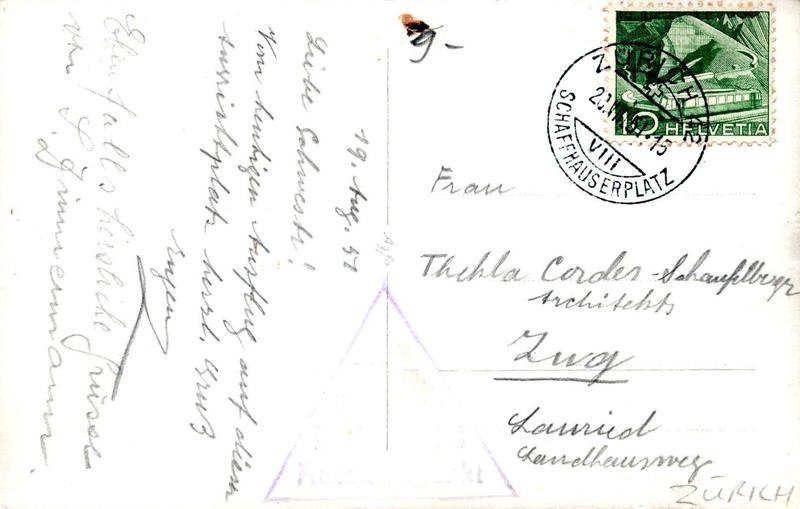 19. Aug. 51
Liebe Schwester!
Von heutigen Ausflug auf diesen
Aussichtsplatz herzl. Gruß
Eugen
Ebenfalls herzliche Grüsse
von L. Zimmermann
9-
ZÜRICH
VIII
SCHAFFHAUSERPLATZ
10 HELVETIA
Frau
Thekla Cordes-Schaufelberger
Architekts
Zug
Lauried
Landhausweg
ZÜRICH